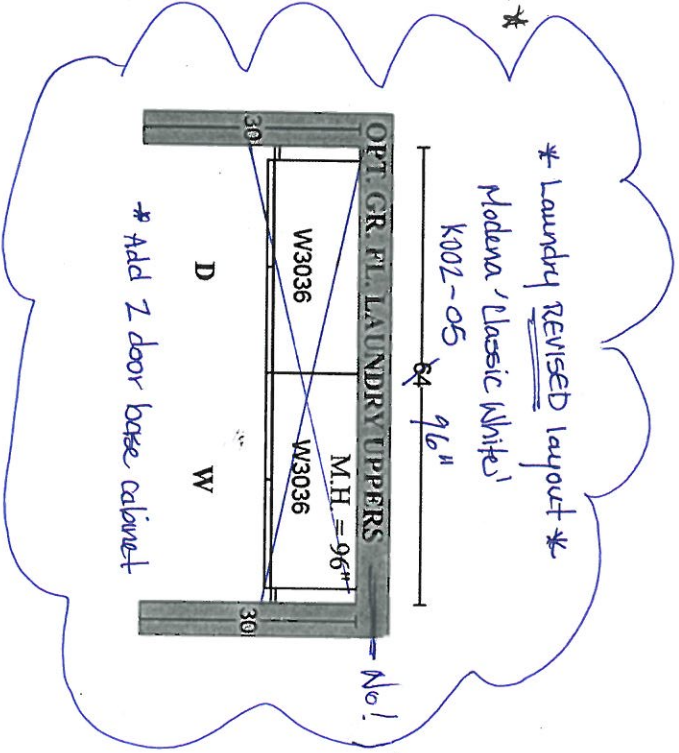 *
* Laundry REVISED layout *
Modena 'Classic White'
K002-05
64 96"
OPT. GR. FL. LAUNDRY UPPERS
No!
M.H. = 96"
W3036
W3036
30
30
D
W
* Add 2 door base cabinet